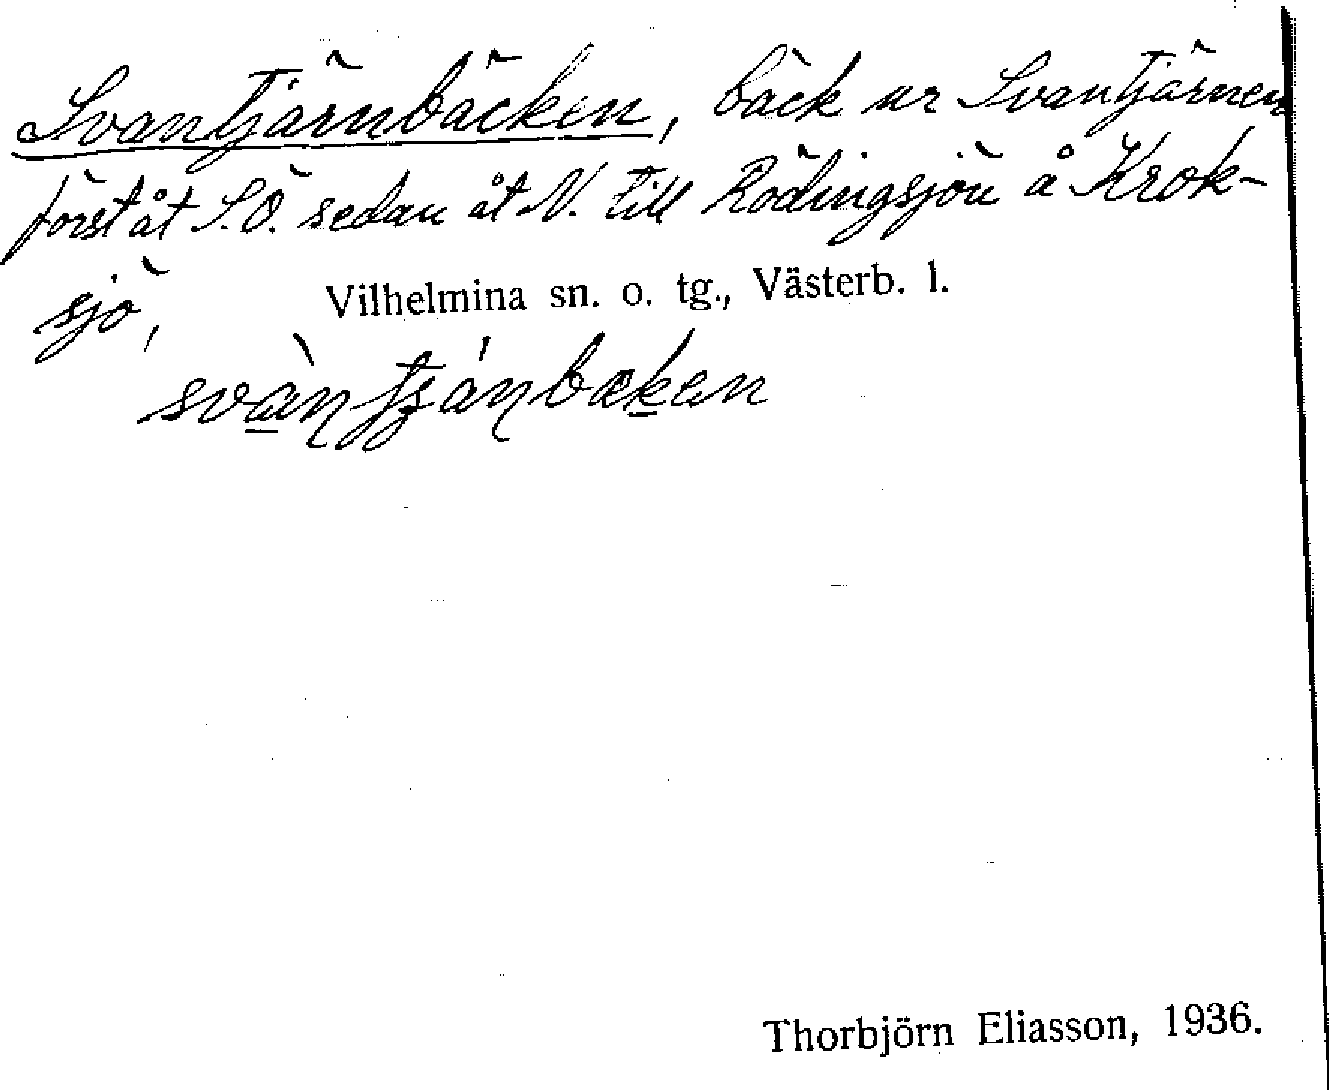 Svantjärnbäcken, bäck ur Svantjärnen
först åt S.Ö. sedan åt N. till Rödingsjön å Krok-
sjö, Vilhelmina sn. o. tg., Västerb. l.
Thorbjörn Eliasson, 1936.